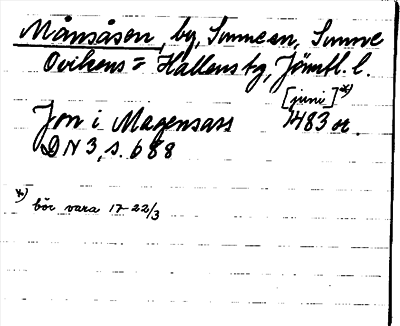 Månsåsen, by, Sunne sn, Sunne
Ovikens = Hallens tg, Jämtl. l.
[juni] x)
Jon i Magensaas 1483 or.
DN 3, s. 688
x) bör vara 17-22/3